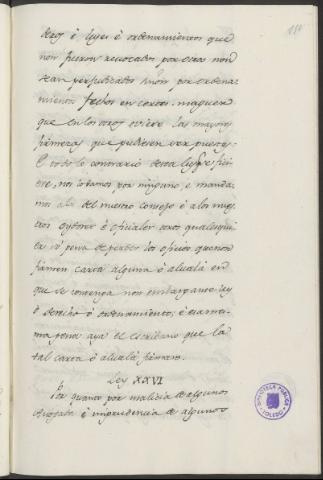 deros é leyes é ordenamientos que
non fueron revocados por otros non
sean perjudicados sinon por ordena-
mientos fechos en cortes, maguer
que en los otros oviere las mayores
firmezas que pudiesen ser puestas.
E todo lo contrario desta ley se fici-
ere, nos lo damos por ninguno, e manda-
mos á los del nuestro consejo é a los nues-
tros oydores é oficiales otros qualesqui-
er só pena de perder los oficios que non
firmen carta alguna ó alvalá en
que se contenga non embargante ley
ó derecho ó ordenamiento, é esa mis-
ma pena aya el escribano que la
tal carta ó alvalá firmare.
Ley XXVI
Por quanto por malicia de algunos
Avogados é imprudencia de algunos
BIBLIOTECA PUBLICA
TOLEDO